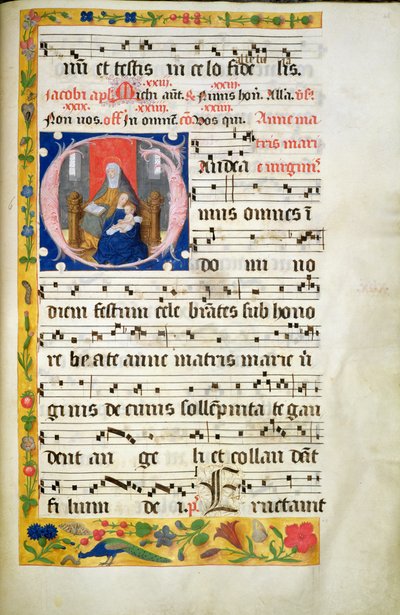 nū et testis in celo fide lis.
Jacobi apli Michi aūt. & Nimis hon. Alla.
Non vos. Off In omnē. cō Vos qui. Anne ma
tris mari
Audea e virginis
mus omnes ī
do mi no
diem festum cele brātes sub hono
re be ate anne matris marie vi
ginis de cuius sollēpnita te gau
dent an ge li et collau dāt
fi lium de i. ps Eructauit